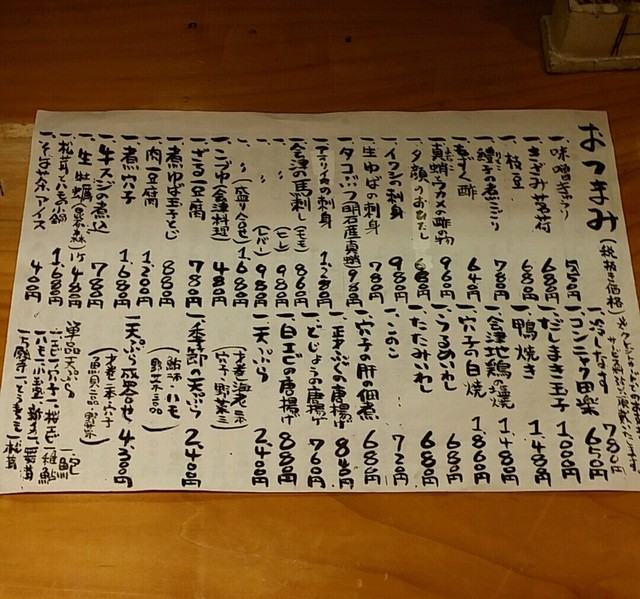 おつまみ(税抜き価格)
一、味噌きゅうり 580円
一、きざみ茗荷 680円
一、枝豆 680円
一、鱧子の煮こごり 780円
一、もずく酢 640円
一、真蛸とワカメの酢の物 960円
一、夕顔のおひたし 680円
一、イワシの刺身 980円
一、生ゆばの刺身 780円
一、タコぶつ(明石産真蛸) 980円
一、アオリイカの刺身 1,280円
一、会津の馬刺し(モモ) 860円
一、〃(ヒレ) 980円
一、〃(レバー) 980円
一、〃(盛り合せ) 1,680円
一、こづゆ(会津料理) 480円
一、ざる豆腐 780円
一、煮ゆば玉子とじ 880円
一、肉豆腐 1,200円
一、煮穴子 1,680円
一、牛スジの煮込 780円
一、生牡蠣 1ケ 480円
一、松茸とハモの小鍋 1,680円
一、そば茶アイス 400円
一、冷しなす 780円
一、コンニャク田楽 650円
一、だしまき玉子 1,000円
一、鴨焼き 1,480円
一、会津地鶏の塩焼 1,480円
一、穴子の白焼 1,860円
一、うるめいわし 680円
一、たたみいわし 680円
一、このこ 720円
一、穴子の肝の佃煮 680円
一、正才ふぐの唐揚げ 840円
一、どじょうの唐揚げ 760円
一、白エビの唐揚げ 880円
一、天ぷら 2,400円
(才巻海老二本 穴子 野菜三品)
一、季節の天ぷら 2,400円
(鮎 ハモ 野菜三品)
一、天ぷら盛合せ 4,300円
(才巻二本 穴子 魚貝三品 野菜)
単品天ぷら